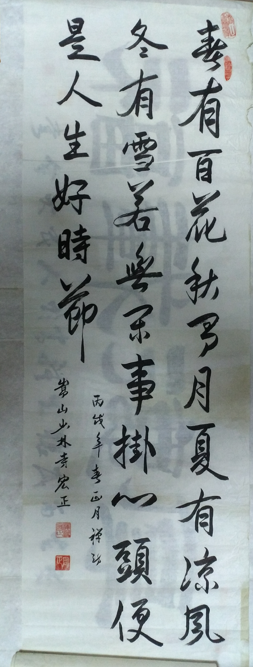 春有百花秋有月夏有涼風
冬有雪若無閑事掛心頭便
是人生好時節
丙戌年春正月禪語
嵩山少林寺宏正